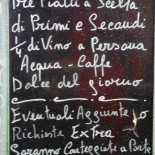 Tre Piatti a Scelta
di Primi e Secondi
1/2 di Vino a Persona
Acqua - Caffe
Dolce del giorno
Eventuali Aggiunte /o
Richieste Extra
Saranno Conteggiate a Parte